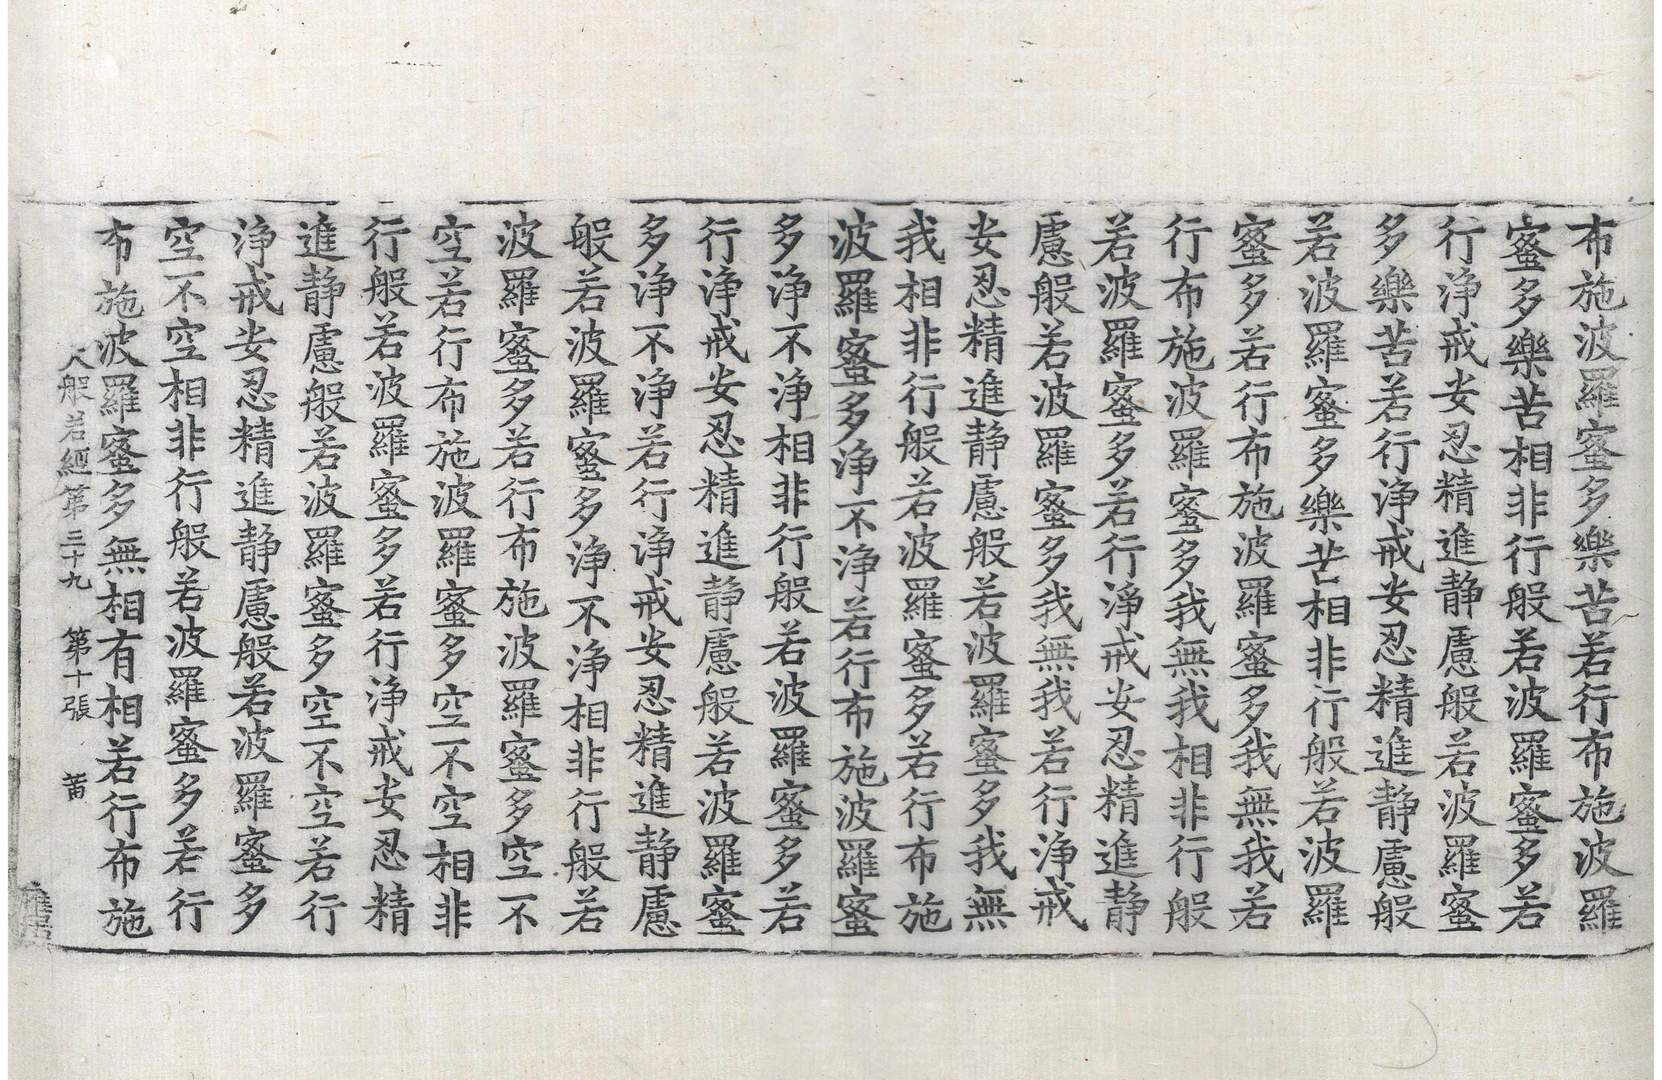 布施波羅蜜多樂苦若行布施波羅
蜜多樂苦相非行般若波羅蜜多若
行浄戒安忍精進静慮般若波羅蜜
多樂苦若行浄戒安忍精進静慮般
若波羅蜜多樂苦相非行般若波羅
蜜多若行布施波羅蜜多我無我若
行布施波羅蜜多我無我相非行般
若波羅蜜多若行浄戒安忍精進静
慮般若波羅蜜多我無我若行浄戒
安忍精進静慮般若波羅蜜多我無
我相非行般若波羅蜜多若行布施
波羅蜜多浄不浄若行布施波羅蜜
多浄不浄相非行般若波羅蜜多若
行浄戒安忍精進静慮般若波羅蜜
多浄不浄若行浄戒安忍精進静慮
般若波羅蜜多浄不浄相非行般若
波羅蜜多若行布施波羅蜜多空不
空若行布施波羅蜜多空不空相非
行般若波羅蜜多若行浄戒安忍精
進静慮般若波羅蜜多空不空若行
浄戒安忍精進静慮般若波羅蜜多
空不空相非行般若波羅蜜多若行
布施波羅蜜多無相有相若行布施
大般若經第三十九 第十張